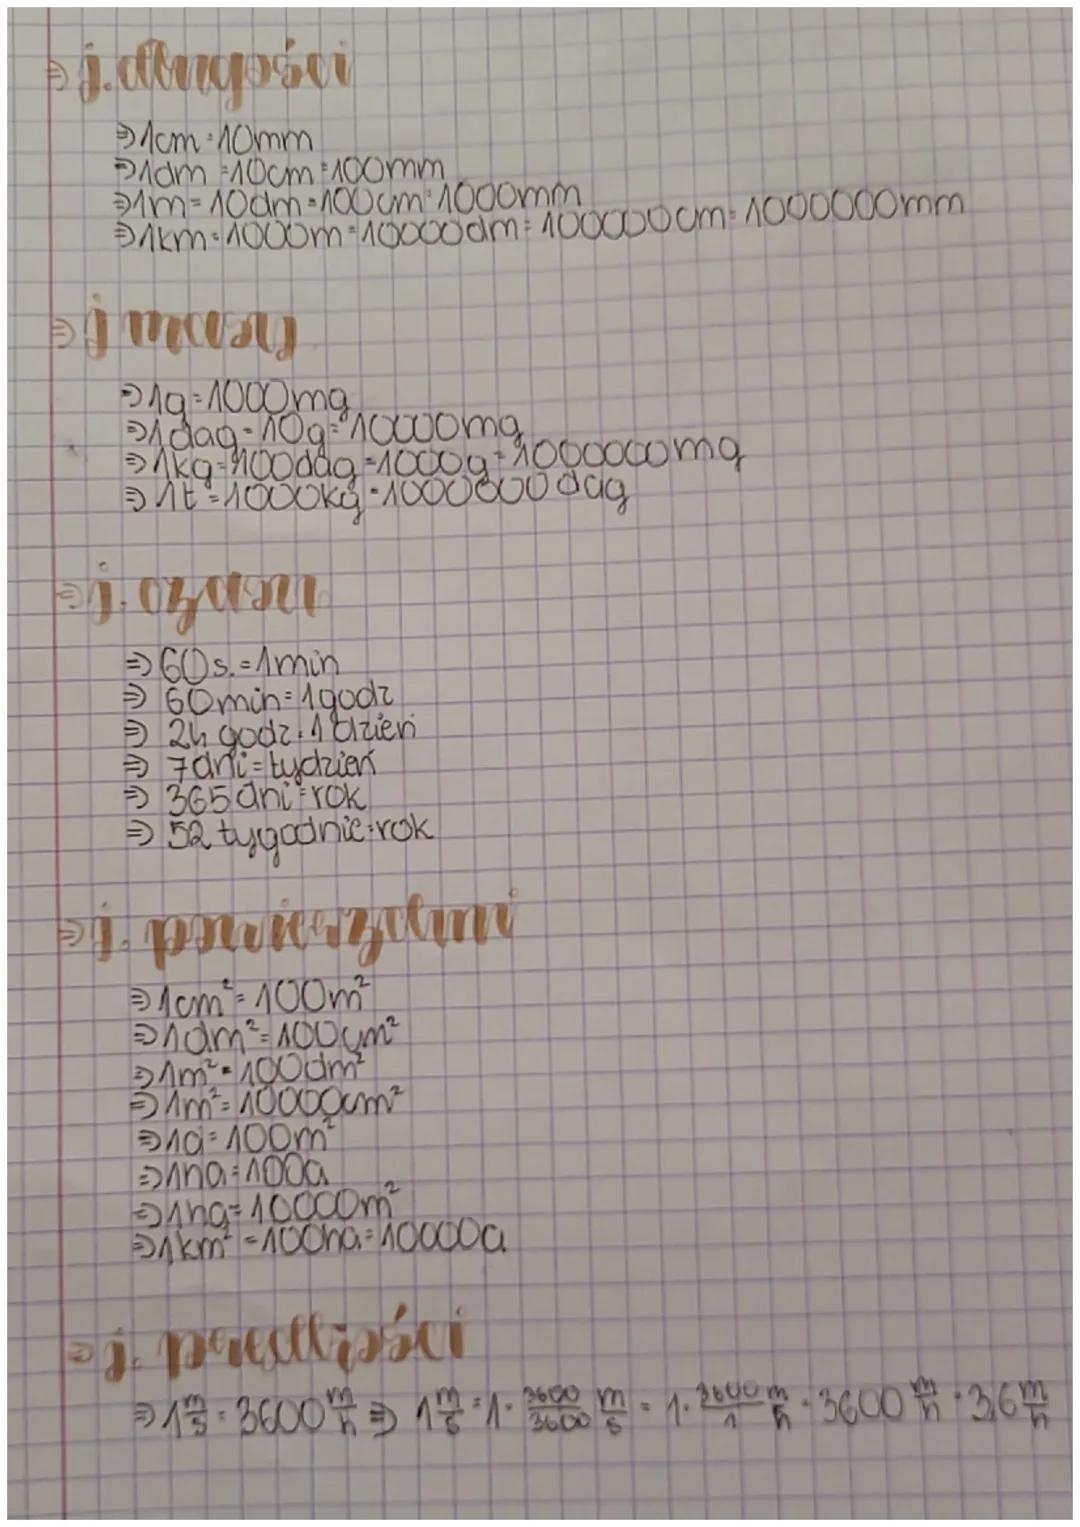 ⇒ j. długości
⇒ 1cm = 10mm
⇒ 1dm = 10cm = 100mm
⇒ 1m = 10dm = 100cm = 1000mm
⇒ 1km = 1000m = 10000dm = 100000cm = 1000000mm
⇒ j masy
⇒ 1g = 1000mg
⇒ 1dag = 10g = 10000mg
⇒ 1kg = 100dag = 1000g = 1000000mg
⇒ 1t = 1000kg = 1000000dag
⇒ j. czasu
⇒ 60s. = 1min
⇒ 60min = 1godz
⇒ 24 godz = 1 dzień
⇒ 7dni = tydzień
⇒ 365 dni = rok
⇒ 52 tygodnie = rok
⇒ j. powierzchni
⇒ 1cm² = 100m²
⇒ 1dm² = 100cm²
⇒ 1m² = 100dm²
⇒ 1m² = 10000cm²
⇒ 1a = 100m²
⇒ 1ha = 100a
⇒ 1ha = 10000m²
⇒ 1km² = 100ha = 10000a
⇒ j. prędkości
⇒ 1 m/s = 3600 m/h ⇒ 1 m/s = 1 · 3600/3600 m/s = 1 · 3600/1 m/h = 3600 m/h = 3,6 m/h